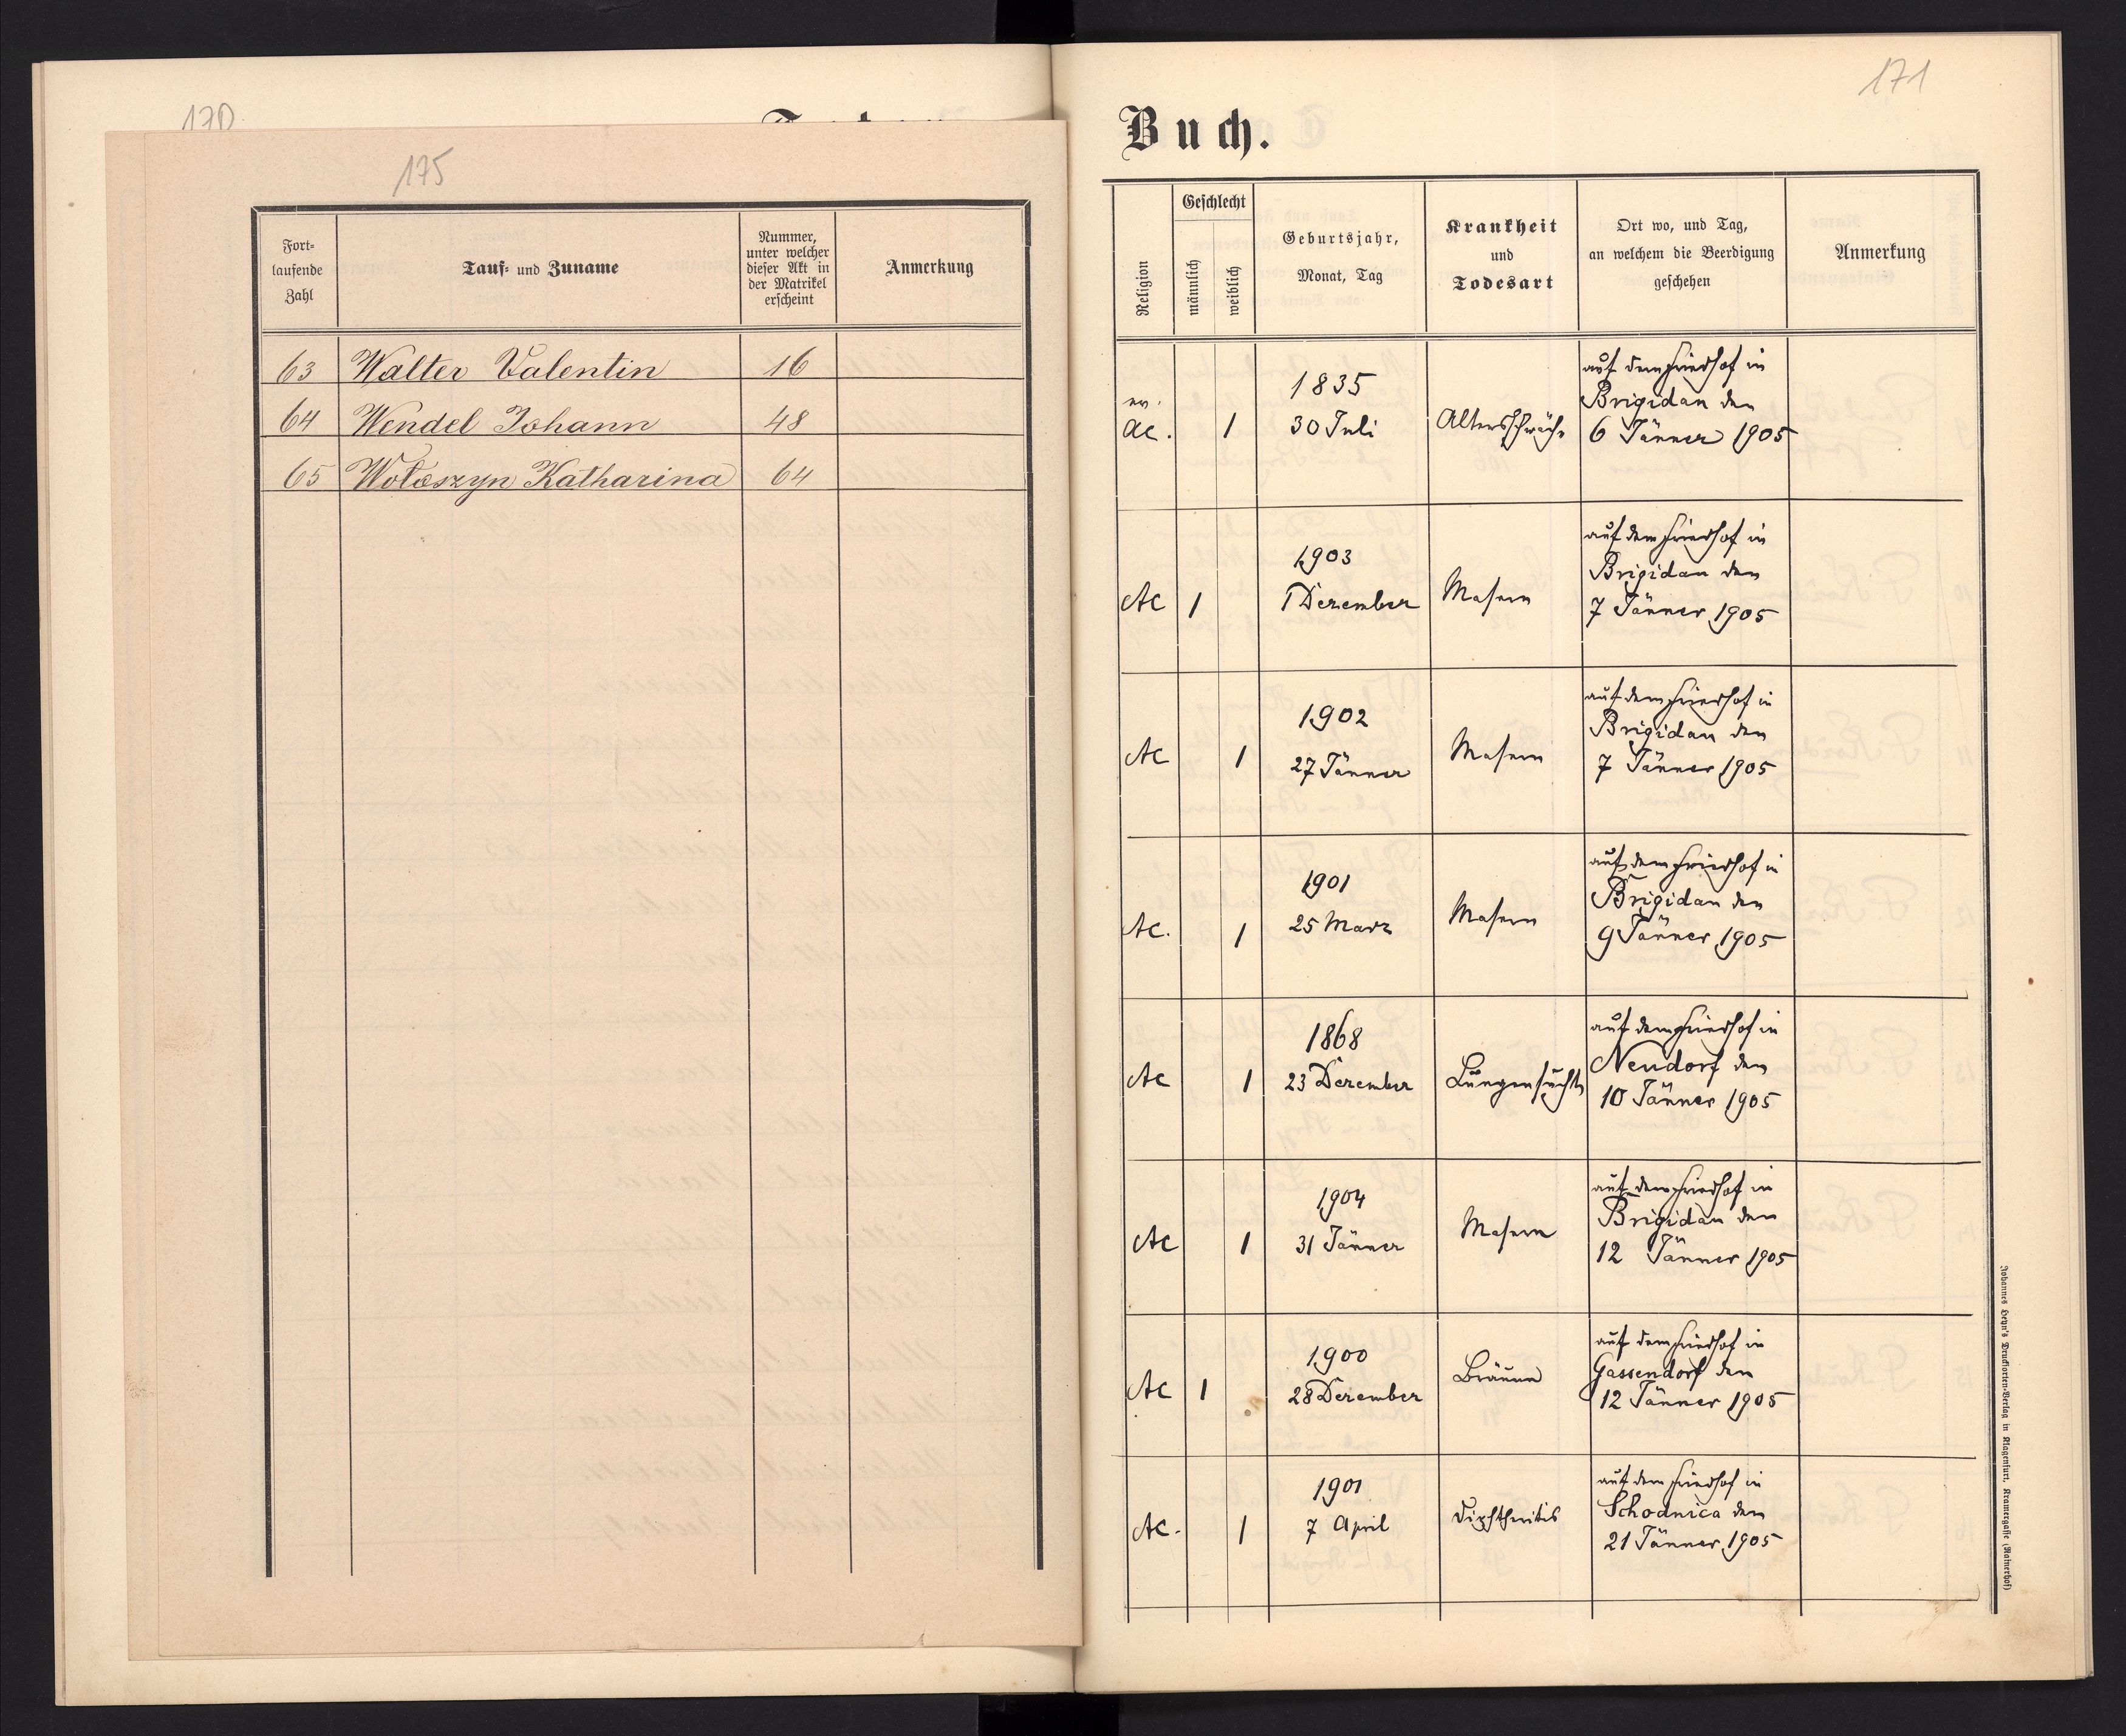 170
175
Fort-
laufende
Zahl
Tauf- und Zuname
Nummer,
unter welcher
dieser Akt in
der Matrikel
erscheint
Anmerkung
63 Walter Valentin 16
64 Wendel Johann 48
65 Wołoszyn Katharina 64
171
Buch.
Religion
Geschlecht
männlich
weiblich
Geburtsjahr,
Monat, Tag
Krankheit
und
Todesart
Ort wo, und Tag,
an welchem die Beerdigung
geschehen
Anmerkung
ev.
AC. 1
1835
30 Juli
Altersschwäche
auf dem Friedhof in
Brigidau den
6 Jänner 1905
AC 1
1903
1 Dezember
Masern
auf dem Friedhof in
Brigidau den
7 Jänner 1905
AC 1
1902
27 Jänner
Masern
auf dem Friedhof in
Brigidau den
7 Jänner 1905
AC. 1
1901
25 März
Masern
auf dem Friedhof in
Brigidau den
9 Jänner 1905
AC 1
1868
23 Dezember
Lungensucht
auf dem Friedhof in
Neudorf den
10 Jänner 1905
AC 1
1904
31 Jänner
Masern
auf dem Friedhof in
Brigidau den
12 Jänner 1905
AC 1
1900
28 Dezember
Bräune
auf dem Friedhof in
Gassendorf den
12 Jänner 1905
AC. 1
1901
7 April
Diphtheritis
auf dem Friedhof in
Schodnica den
21 Jänner 1905
Johannes Heyn's Drucksorten-Verlag in Klagenfurt, Kramergasse (Rainerhof)